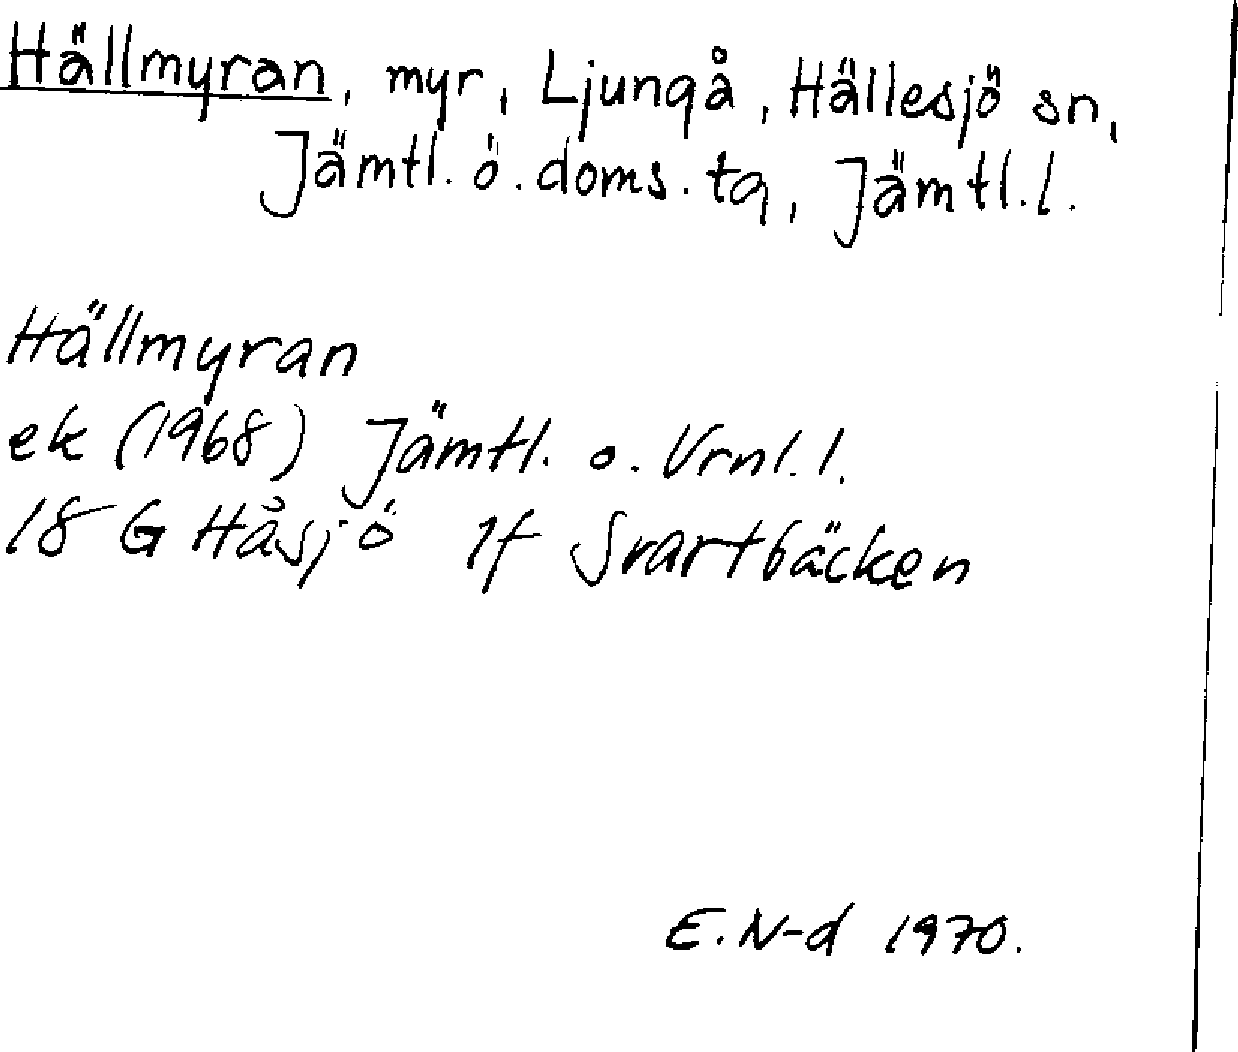 Hällmyran, myr, Ljungå, Hällesjö sn,
Jämtl. ö. doms. tg, Jämtl. l.
Hällmyran
ek (1968) Jämtl. o. Vrnl. l.
18 G Håsjö 1f Svartbäcken
E. N-d 1970.